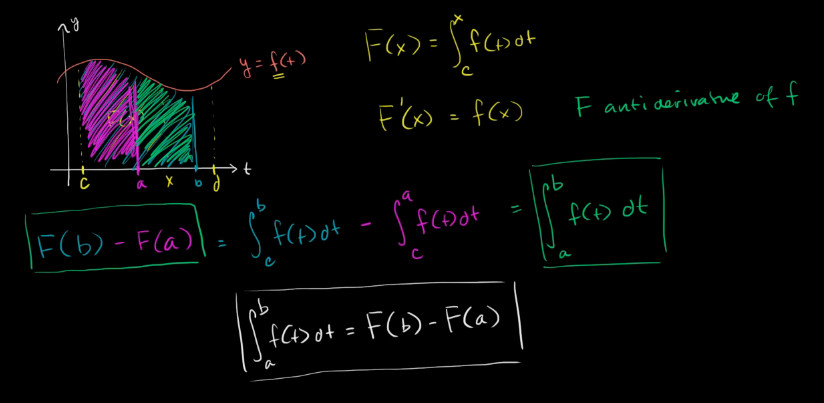 y
y = f(t)
F(x)
c a x b d t
F(x) = ∫_c^x f(t) dt
F'(x) = f(x)
F antiderivative of f
F(b) - F(a) = ∫_c^b f(t) dt - ∫_c^a f(t) dt = ∫_a^b f(t) dt
∫_a^b f(t) dt = F(b) - F(a)